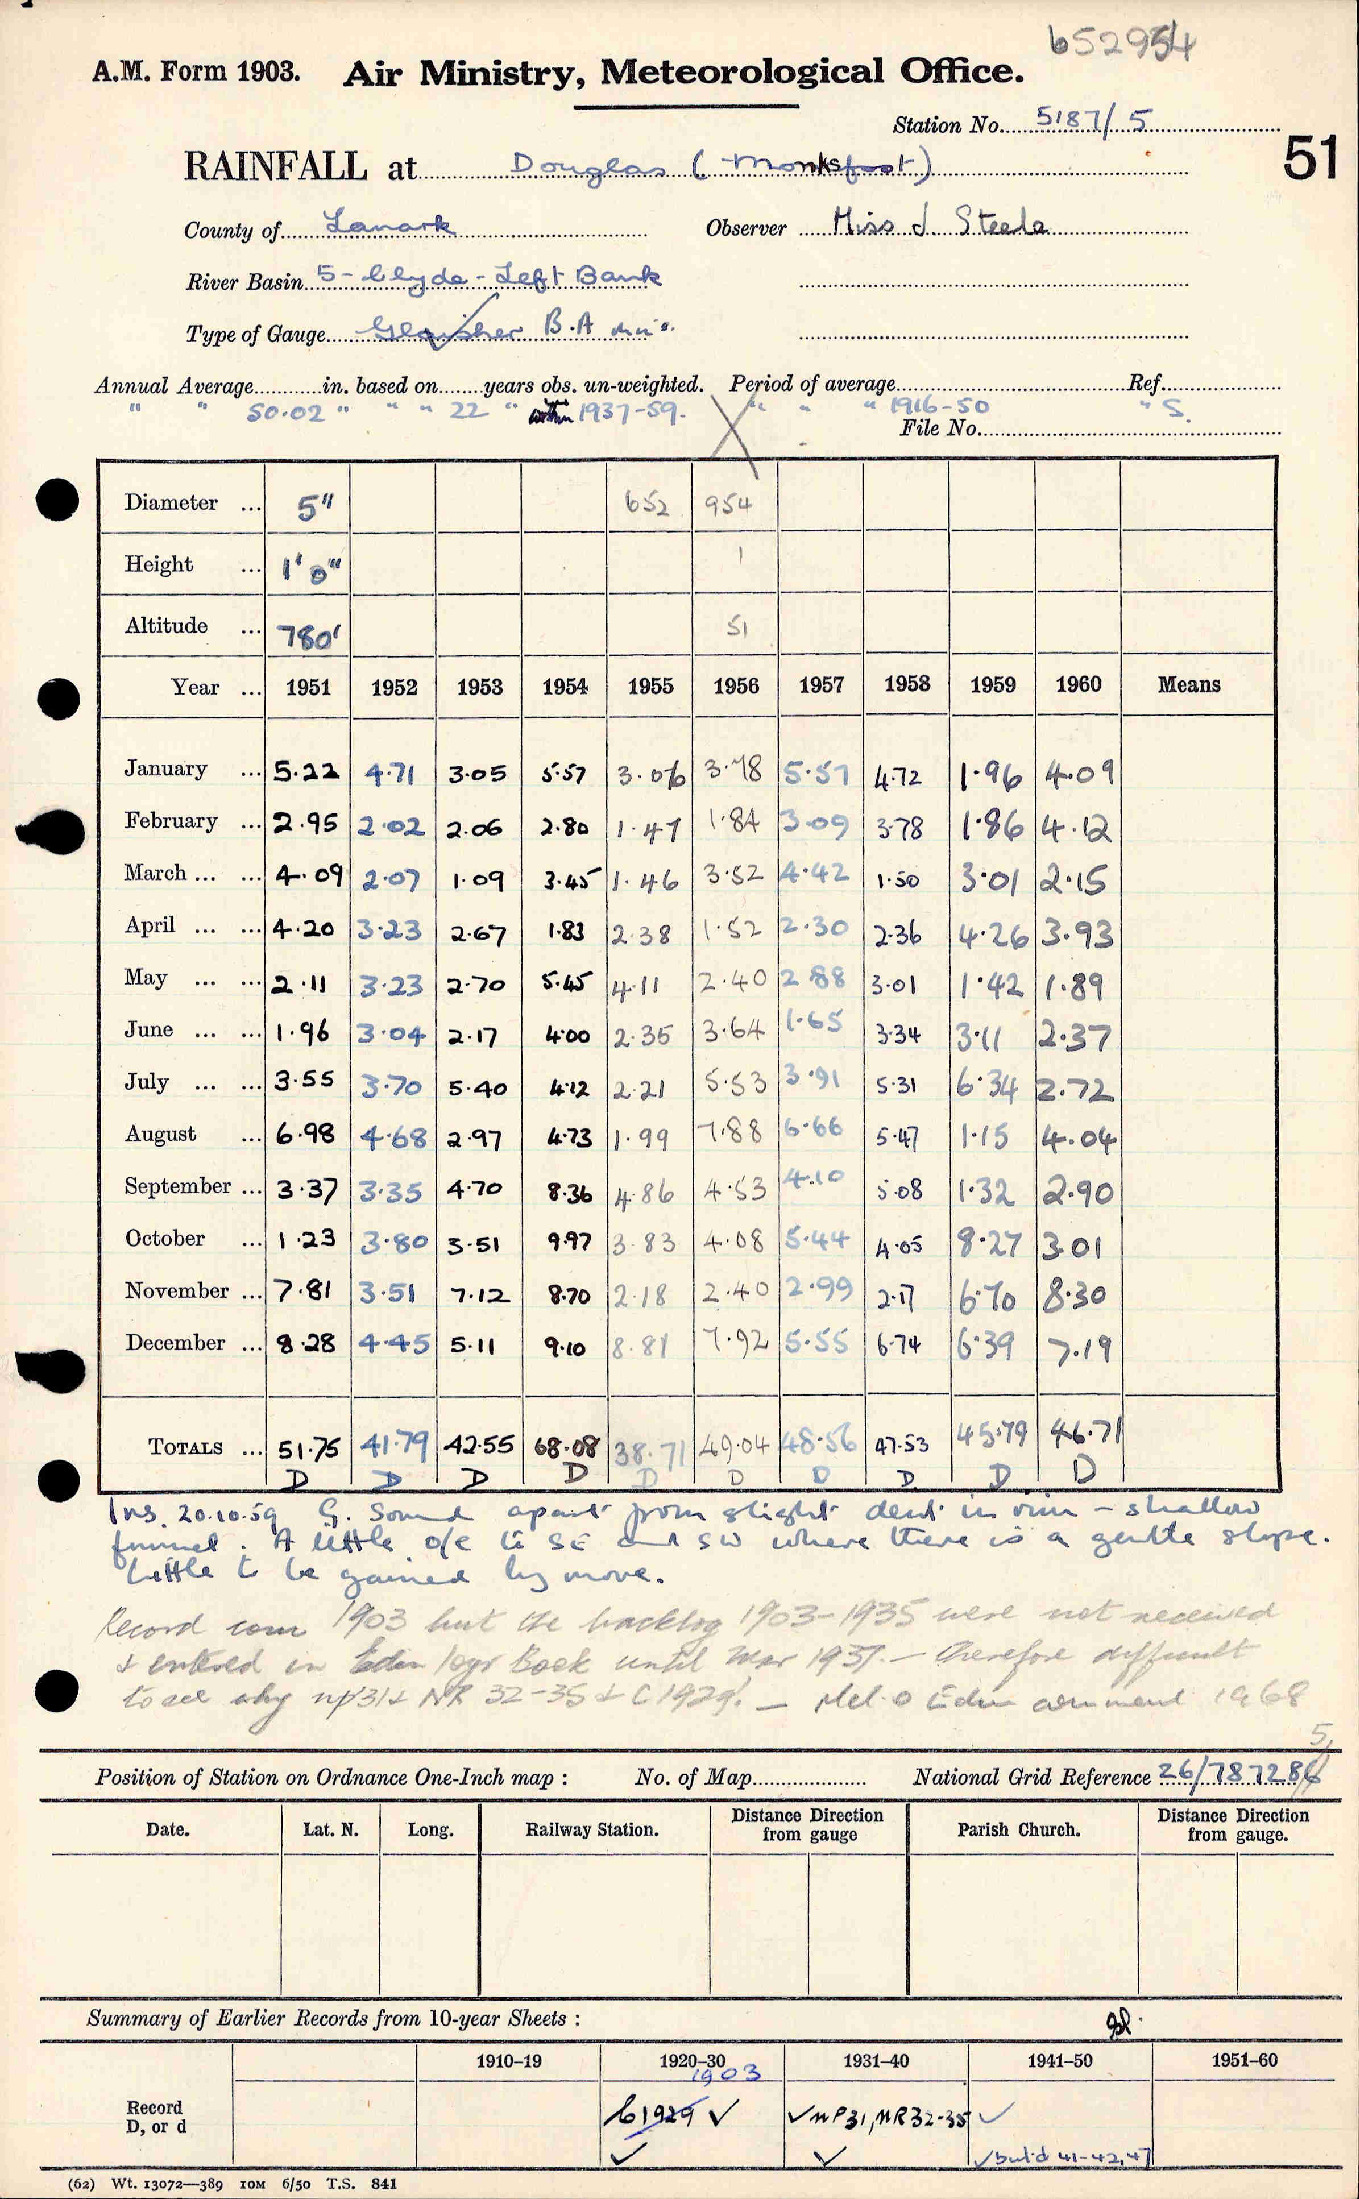 652954
A.M. Form 1903. Air Ministry, Meteorological Office.
Station No. 5187/5
51
RAINFALL at Douglas (Monksfoot)
County of Lanark Observer Miss J. Steele
River Basin 5 - Clyde - Left Bank
Type of Gauge Glaisher B.A
Annual Average in. based on years obs. un-weighted. Period of average Ref.
" " 50.02 " " " 22 " within 1937-59. " " " 1916-50 " S.
File No.
Diameter ... 5" 652 954
Height ... 1' 0" 1
Altitude ... 780' 51
Year ... 1951 1952 1953 1954 1955 1956 1957 1958 1959 1960 Means
January ... 5.22 4.71 3.05 5.57 3.06 3.78 5.57 4.72 1.96 4.09
February ... 2.95 2.02 2.06 2.80 1.47 1.84 3.09 3.78 1.86 4.12
March ... ... 4.09 2.07 1.09 3.45 1.46 3.52 4.42 1.50 3.01 2.15
April ... ... 4.20 3.23 2.67 1.83 2.38 1.52 2.30 2.36 4.26 3.93
May ... ... 2.11 3.23 2.70 5.45 4.11 2.40 2.88 3.01 1.42 1.89
June ... ... 1.96 3.04 2.17 4.00 2.35 3.64 1.65 3.34 3.11 2.37
July ... ... 3.55 3.70 5.40 4.12 2.21 5.53 3.91 5.31 6.34 2.72
August ... 6.98 4.68 2.97 4.73 1.99 7.88 6.66 5.47 1.15 4.04
September ... 3.37 3.35 4.70 8.36 4.86 4.53 4.10 5.08 1.32 2.90
October ... 1.23 3.80 3.51 9.97 3.83 4.08 5.44 4.05 8.27 3.01
November ... 7.81 3.51 7.12 8.70 2.18 2.40 2.99 2.17 6.70 8.30
December ... 8.28 4.45 5.11 9.10 8.81 7.92 5.55 6.74 6.39 7.19
TOTALS ... 51.75 41.79 42.55 68.08 38.71 49.04 48.56 47.53 45.79 46.71
D D D D D D D D D D
Ins. 20.10.59 G. Sound apart from slight dent in rim - shallow
funnel. A little o/e to SE and SW where there is a gentle slope.
Little to be gained by move.
Record com 1903 but the backlog 1903-1935 were not received
& entered in Edin Regr Book until Mar 1937. - therefore difficult
to see why np31 & NR 32-35 & C1929! - Met. O Edin comment 1968
5
Position of Station on Ordnance One-Inch map : No. of Map National Grid Reference 26/787286
Date. Lat. N. Long. Railway Station. Distance Direction from gauge Parish Church. Distance Direction from gauge.
Summary of Earlier Records from 10-year Sheets :
1910-19 1920-30 1931-40 1941-50 1951-60
1903
Record D, or d C1929 ✓ ✓ NP31, NR32-35 ✓
✓ ✓ ✓ but d 41-42, 47
(62) Wt. 13072-389 10M 6/50 T.S. 841